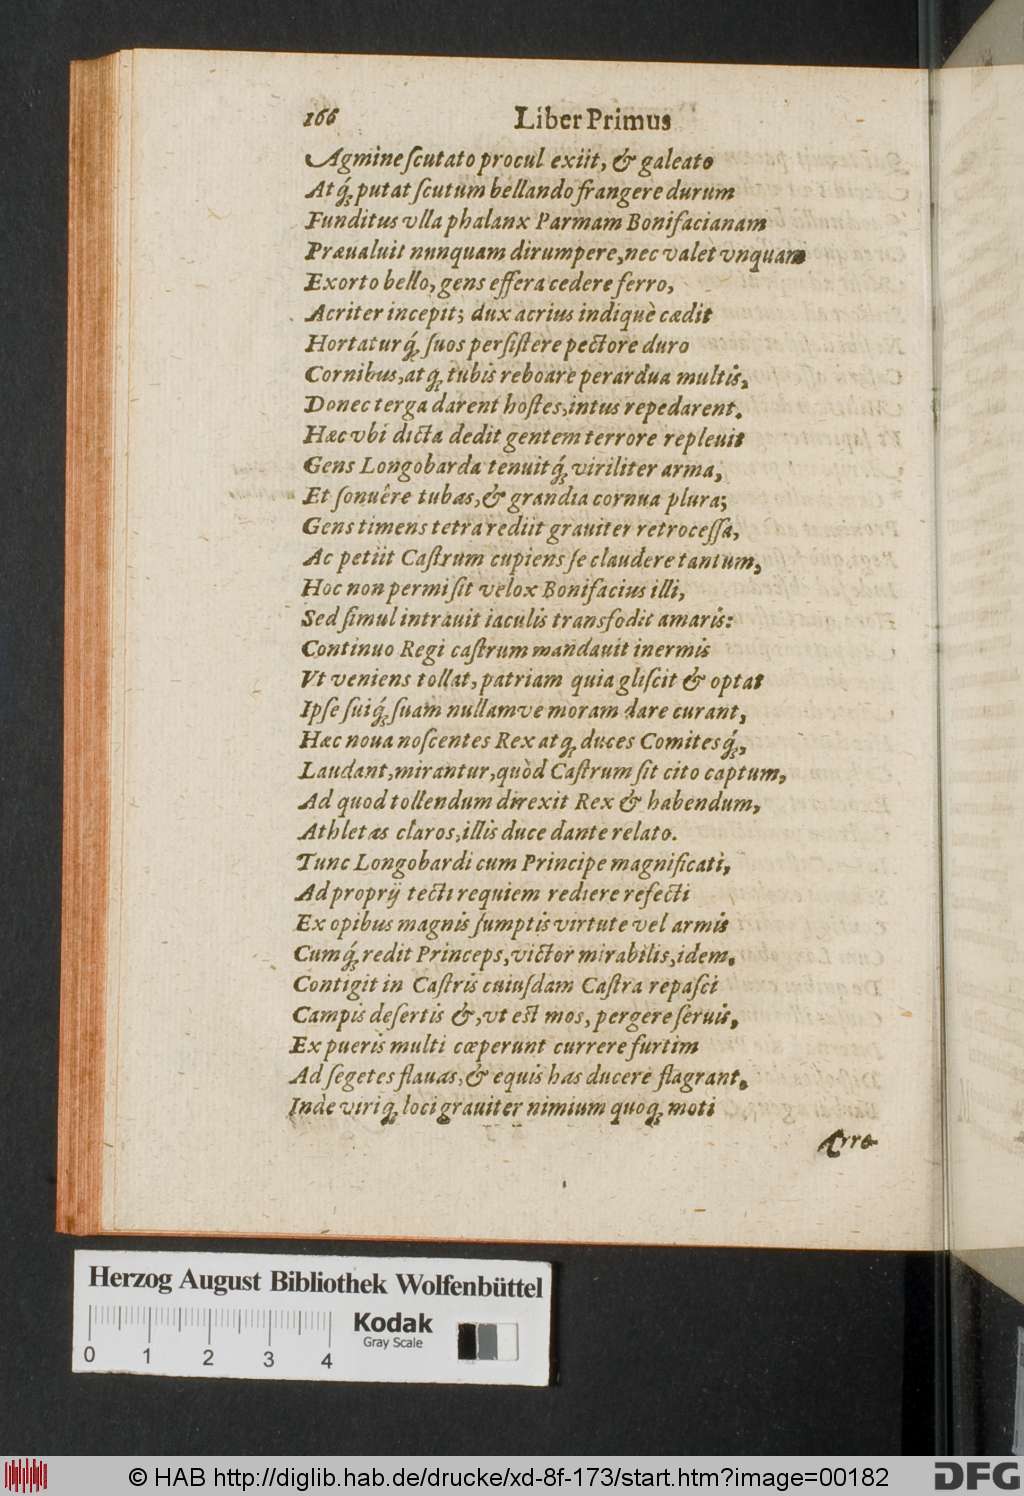 166 Liber Primus
Agmine ſcutato procul exiit, & galeato
Atq́; putat ſcutum bellando frangere durum
Funditus vlla phalanx Parmam Bonifacianam
Præualuit nunquam dirumpere, nec valet vnquam
Exorto bello, gens effera cedere ferro,
Acriter incepit; dux acrius indiquè cædit
Hortaturq́; ſuos perſiſtere pectore duro
Cornibus, atq; tubis reboare perardua multis,
Donec terga darent hoſtes, intus repedarent.
Hæc vbi dicta dedit gentem terrore repleuit
Gens Longobarda tenuitq́; viriliter arma,
Et ſonuêre tubas, & grandia cornua plura;
Gens timens tetra rediit grauiter retroceſſa,
Ac petiit Caſtrum cupiens ſe claudere tantum,
Hoc non permiſit velox Bonifacius illi,
Sed ſimul intrauit iaculis transfodit amaris:
Continuo Regi caſtrum mandauit inermis
Vt veniens tollat, patriam quia gliſcit & optat
Ipſe ſuiq́; ſuam nullamve moram dare curant,
Hæc noua noſcentes Rex atq; duces Comitesq́;,
Laudant, mirantur, quòd Caſtrum ſit cito captum,
Ad quod tollendum direxit Rex & habendum,
Athletas claros, illis duce dante relato.
Tunc Longobardi cum Principe magnificati,
Ad proprij tecti requiem rediere refecti
Ex opibus magnis ſumptis virtute vel armis
Cumq́; redit Princeps, victor mirabilis, idem.
Contigit in Caſtris cuiuſdam Caſtra repaſci
Campis deſertis &, vt eſt mos, pergere ſeruis,
Ex pueris multi cœperunt currere furtim
Ad ſegetes flauas, & equis has ducere flagrant.
Inde viriq; loci grauiter nimium quoq; moti
Arre-
Herzog August Bibliothek Wolfenbüttel
Kodak
Gray Scale
0 1 2 3 4
© HAB http://diglib.hab.de/drucke/xd-8f-173/start.htm?image=00182
DFG